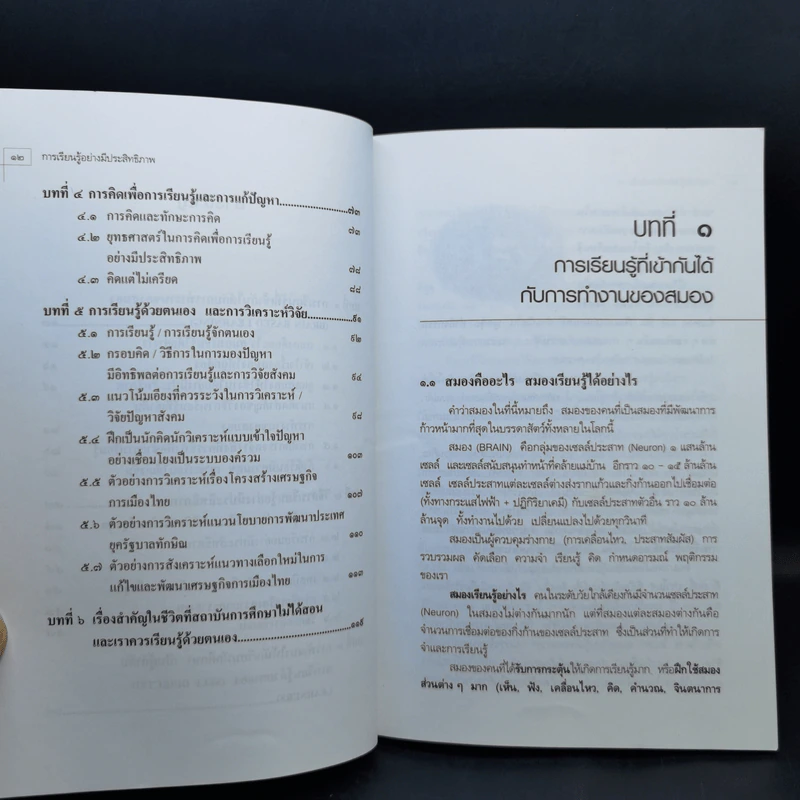 ๑๒ การเรียนรู้อย่างมีประสิทธิภาพ
บทที่ ๔ การคิดเพื่อการเรียนรู้และการแก้ปัญหา.......................๗๓
๔.๑ การคิดและทักษะการคิด ๗๓
๔.๒ ยุทธศาสตร์ในการคิดเพื่อการเรียนรู้
อย่างมีประสิทธิภาพ ๗๘
๔.๓ คิดแต่ไม่เครียด ๘๘
บทที่ ๕ การเรียนรู้ด้วยตนเอง และการวิเคราะห์วิจัย.................๙๑
๕.๑ การเรียนรู้ / การเรียนรู้จักตนเอง ๙๒
๕.๒ กรอบคิด / วิธีการในการมองปัญหา
มีอิทธิพลต่อการเรียนรู้และการวิจัยสังคม ๙๔
๕.๓ แนวโน้มเอียงที่ควรระวังในการวิเคราะห์ /
วิจัยปัญหาสังคม ๙๘
๕.๔ ฝึกเป็นนักคิดนักวิเคราะห์แบบเข้าใจปัญหา
อย่างเชื่อมโยงเป็นระบบองค์รวม ๑๐๓
๕.๕ ตัวอย่างการวิเคราะห์เรื่องโครงสร้างเศรษฐกิจ
การเมืองไทย ๑๐๗
๕.๖ ตัวอย่างการวิเคราะห์แนวนโยบายการพัฒนาประเทศ
ยุครัฐบาลทักษิณ ๑๑๐
๕.๗ ตัวอย่างการสังเคราะห์แนวทางเลือกใหม่ในการ
แก้ไขและพัฒนาเศรษฐกิจการเมืองไทย ๑๑๓
บทที่ ๖ เรื่องสำคัญในชีวิตที่สถาบันการศึกษาไม่ได้สอน
และเราควรเรียนรู้ด้วยตนเอง.............................๑๑๙
บทที่ ๑
การเรียนรู้ที่เข้ากันได้
กับการทำงานของสมอง
๑.๑ สมองคืออะไร สมองเรียนรู้ได้อย่างไร
คำว่าสมองในที่นี้หมายถึง สมองของคนที่เป็นสมองที่มีพัฒนาการ
ก้าวหน้ามากที่สุดในบรรดาสัตว์ทั้งหลายในโลกนี้
สมอง (BRAIN) คือกลุ่มของเซลล์ประสาท (Neuron) ๑ แสนล้าน
เซลล์ และเซลล์สนับสนุนทำหน้าที่คล้ายแม่บ้าน อีกราว ๑๐ – ๑๕ ล้านล้าน
เซลล์ เซลล์ประสาทแต่ละเซลล์ต่างส่งรากแก้วและกิ่งก้านออกไปเชื่อมต่อ
(ทั้งทางกระแสไฟฟ้า + ปฏิกิริยาเคมี) กับเซลล์ประสาทตัวอื่น ราว ๑๐ ล้าน
ล้านจุด ทั้งทำงานไปด้วย เปลี่ยนแปลงไปด้วยทุกวินาที
สมองเป็นผู้ควบคุมร่างกาย (การเคลื่อนไหว, ประสาทสัมผัส) การ
รวบรวมผล คัดเลือก ความจำ เรียนรู้ คิด กำหนดอารมณ์ พฤติกรรม
ของเรา
สมองเรียนรู้อย่างไร คนในระดับวัยใกล้เคียงกันมีจำนวนเซลล์ประสาท
(Neuron) ในสมองไม่ต่างกันมากนัก แต่ที่สมองแต่ละสมองต่างกันคือ
จำนวนการเชื่อมต่อของกิ่งก้านของเซลล์ประสาท ซึ่งเป็นส่วนที่ทำให้เกิดการ
จำและการเรียนรู้
สมองของคนที่ได้รับการกระตุ้นให้เกิดการเรียนรู้มาก หรือฝึกใช้สมอง
ส่วนต่าง ๆ มาก (เห็น, ฟัง, เคลื่อนไหว, คิด, คำนวณ, จินตนาการ